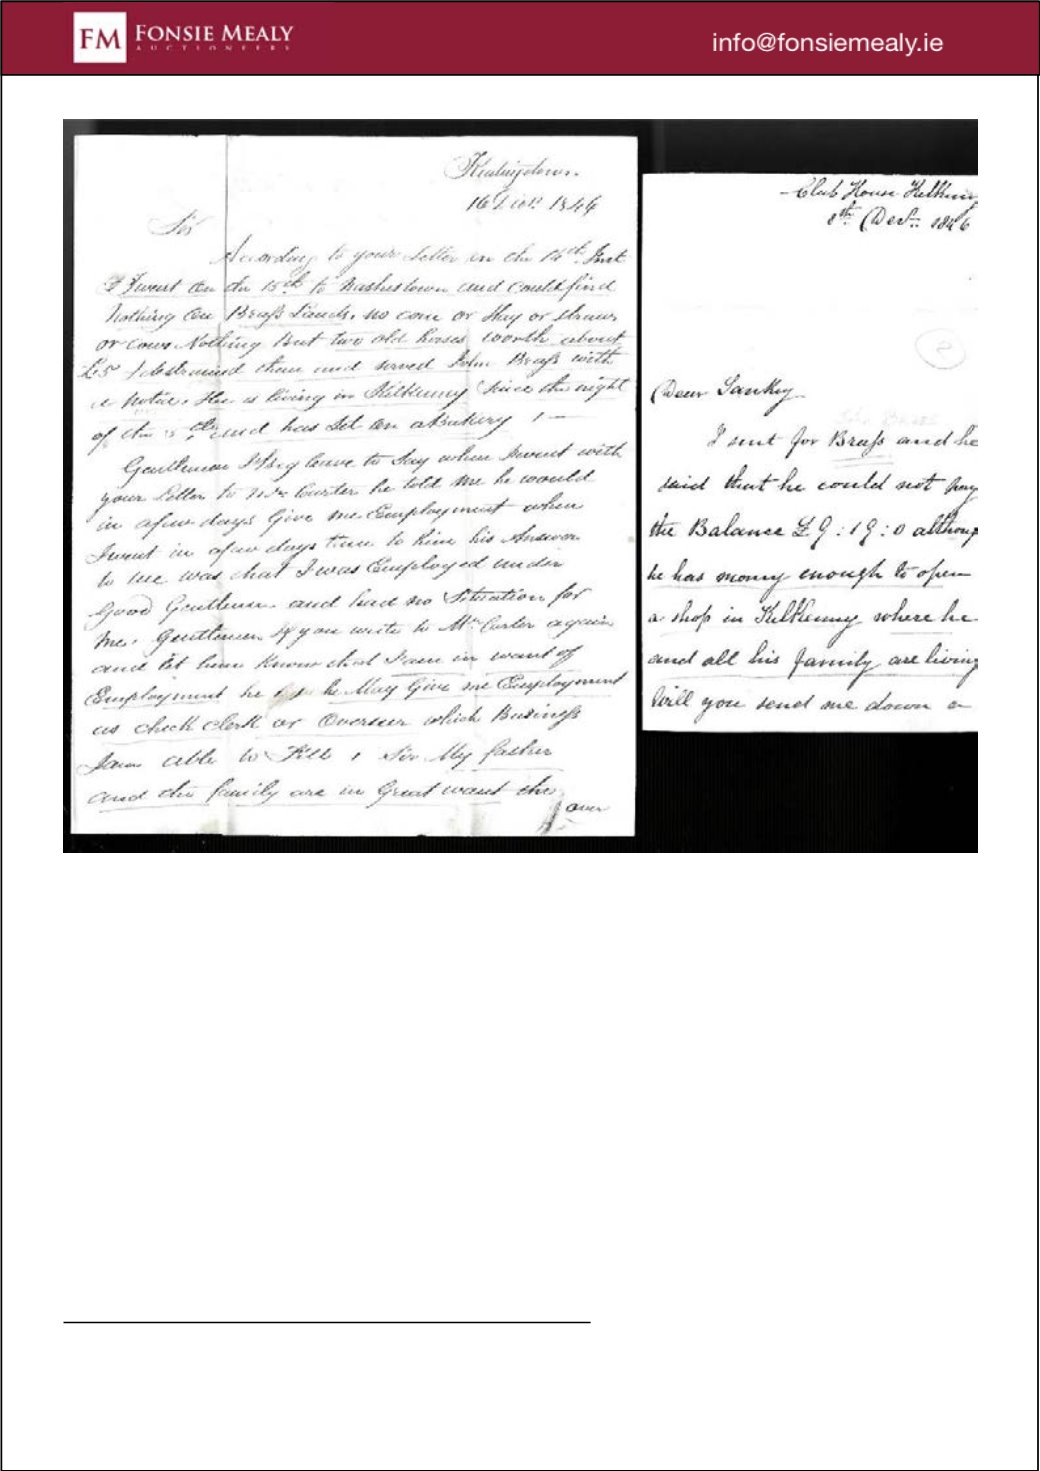 FM FONSIE MEALY
AUCTIONEERS
info@fonsiemealy.ie
16 1846
Sir
According to your letter on the 14th Inst
I went on the 15th to and could find
Nothing on Brass Lands, no corn or Hay or straw
or cows Nothing But two old horses worth about
£5 I distrained them and served John Brass with
a Notice. He is living in Kilkenny Since the night
of the 5th and has Set on a Bakery
Gentlemen I Beg leave to Say when I went with
your Letter to Mr Carter he told me he would
in a few days Give me Employment when
I went in a few days time to him his Answer
to me was that I was Employed under
Good Gentlemen and had no Situation for
me. Gentlemen If you write to Mr Carter again
and let him Know that I am in want of
Employment he he May Give me Employment
as check clerk or Overseer which Business
I am able to Fill, Sir My father
and the family are in Great want the
over
Club House Kilkenny
8th Decr 1846
2
Dear Sankey
I sent for Brass and he
said that he could not pay
the Balance £9:19:0 although
he has money enough to open
a shop in Kilkenny where he
and all his family are living
Will you send me down a